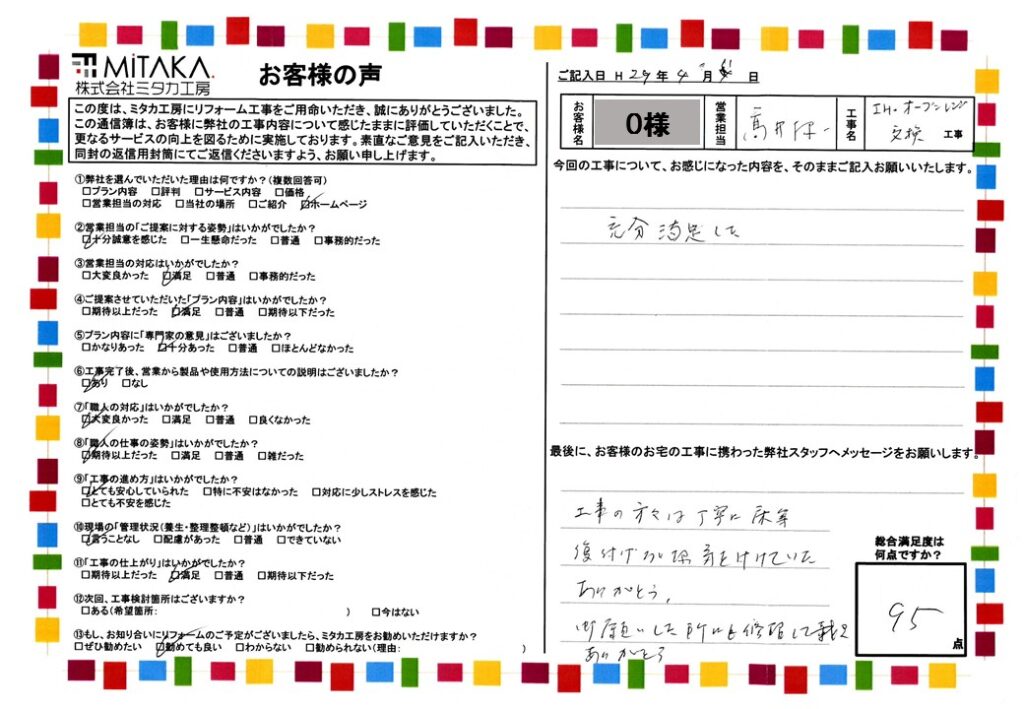 MiTAKA.
株式会社ミタカ工房
お客様の声
この度は、ミタカ工房にリフォーム工事をご用命いただき、誠にありがとうございました。
この通信簿は、お客様に弊社の工事内容について感じたままに評価していただくことで、
更なるサービスの向上を図るために実施しております。素直なご意見をご記入いただき、
同封の返信用封筒にてご返信くださいますよう、お願い申し上げます。
①弊社を選んでいただいた理由は何ですか?(複数回答可)
□プラン内容 □評判 □サービス内容 □価格
□営業担当の対応 □当社の場所 □ご紹介 □ホームページ
②営業担当の「ご提案に対する姿勢」はいかがでしたか?
□十分誠意を感じた □一生懸命だった □普通 □事務的だった
③営業担当の対応はいかがでしたか?
□大変良かった □満足 □普通 □事務的だった
④ご提案させていただいた「プラン内容」はいかがでしたか?
□期待以上だった □満足 □普通 □期待以下だった
⑤プラン内容に「専門家の意見」はございましたか?
□かなりあった □十分あった □普通 □ほとんどなかった
⑥工事完了後、営業から製品や使用方法についての説明はございましたか?
□あり □なし
⑦「職人の対応」はいかがでしたか?
□大変良かった □満足 □普通 □良くなかった
⑧「職人の仕事の姿勢」はいかがでしたか?
□期待以上だった □満足 □普通 □雑だった
⑨「工事の進め方」はいかがでしたか?
□とても安心していられた □特に不安はなかった □対応に少しストレスを感じた
□とても不安を感じた
⑩現場の「管理状況(養生・整理整頓など)」はいかがでしたか?
□言うことなし □配慮があった □普通 □できていない
⑪「工事の仕上がり」はいかがでしたか?
□期待以上だった □満足 □普通 □期待以下だった
⑫次回、工事検討箇所はございますか?
□ある(希望箇所: ) □今はない
⑬もし、お知り合いにリフォームのご予定がございましたら、ミタカ工房をお勧めいただけますか?
□ぜひ勧めたい □勧めても良い □わからない □勧められない(理由: )
ご記入日 H 29 年 4 月 日
お客様名 O様 営業担当 工事名 IH・オーブンレンジ
交換 工事
今回の工事について、お感じになった内容を、そのままご記入お願いいたします。
充分 満足した
最後に、お客様のお宅の工事に携わった弊社スタッフへメッセージをお願いします。
工事の方々は丁寧に床等
気を付けていた
ありがとう。
お願いした所にも修理して戴き
ありがとう
総合満足度は
何点ですか?
95
点